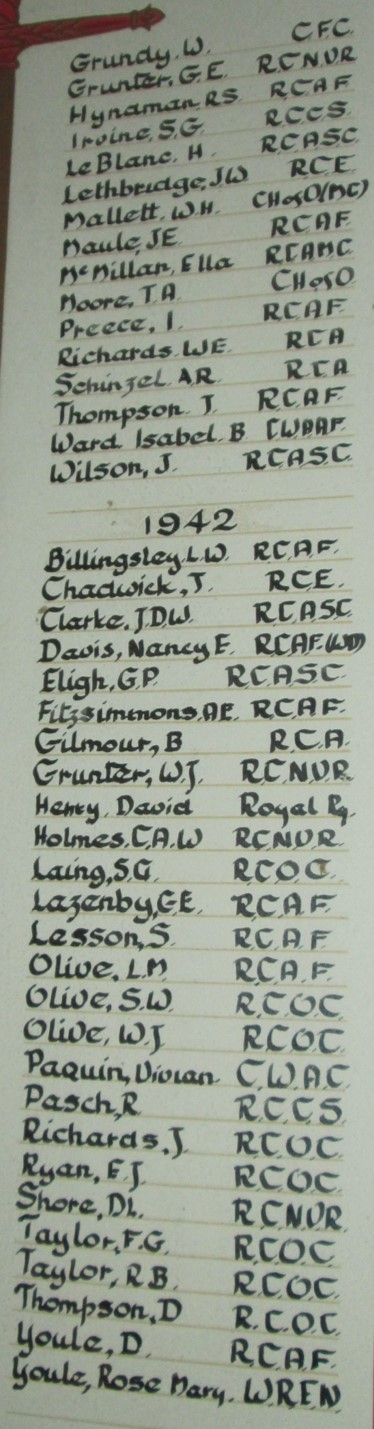 Grundy. W. C.F.C.
Grunter, G.E. R.C.N.V.R
Hyndman, R.S. R.C.A.F
Irvine, S.G. R.C.C.S.
Le Blanc. H. R.C.A.S.C.
Lethbridge, J.W R.C.E.
Mallett. W.H. CH of O(MC)
Maule, J.E. R.C.A.F.
McMillan, Ella R.C.A.M.C.
Moore, T.A CH of O
Preece, I. R.C.A.F.
Richards. W.E. R.C.A
Schinzel. A.R. R.C.A
Thompson. J. R.C.A.F.
Ward. Isabel. B C.W.A.A.F.
Wilson, J. R.C.A.S.C.
1942
Billingsley. L.W. R.C.A.F.
Chadwick, J. R.C.E.
Clarke. J.D.W. R.C.A.S.C
Davis, Nancy E. R.C.A.F.(WD)
Eligh. G.P. R.C.A.S.C.
Fitzsimmons. A.E. R.C.A.F.
Gilmour, B R.C.A.
Grunter, W.J. R.C.N.V.R.
Henry. David Royal Rg.
Holmes. C.A.W R.C.N.V.R.
Laing, S.G. R.C.O.C.
Lazenby, G.E. R.C.A.F.
Lesson, S. R.C.A.F.
Olive, L.M R.C.A.F.
Olive, S.W. R.C.O.C.
Olive, W.J R.C.O.C.
Paquin, Vivian. C.W.A.C.
Pasch, R R.C.C.S.
Richards. J. R.C.O.C.
Ryan, E.J. R.C.O.C.
Shore, D.L. R.C.N.V.R.
Taylor, F.G. R.C.O.C.
Taylor, R.B. R.C.O.C.
Thompson, D R.C.O.C.
Youle, D. R.C.A.F.
Youle, Rose Mary. W.R.E.N.